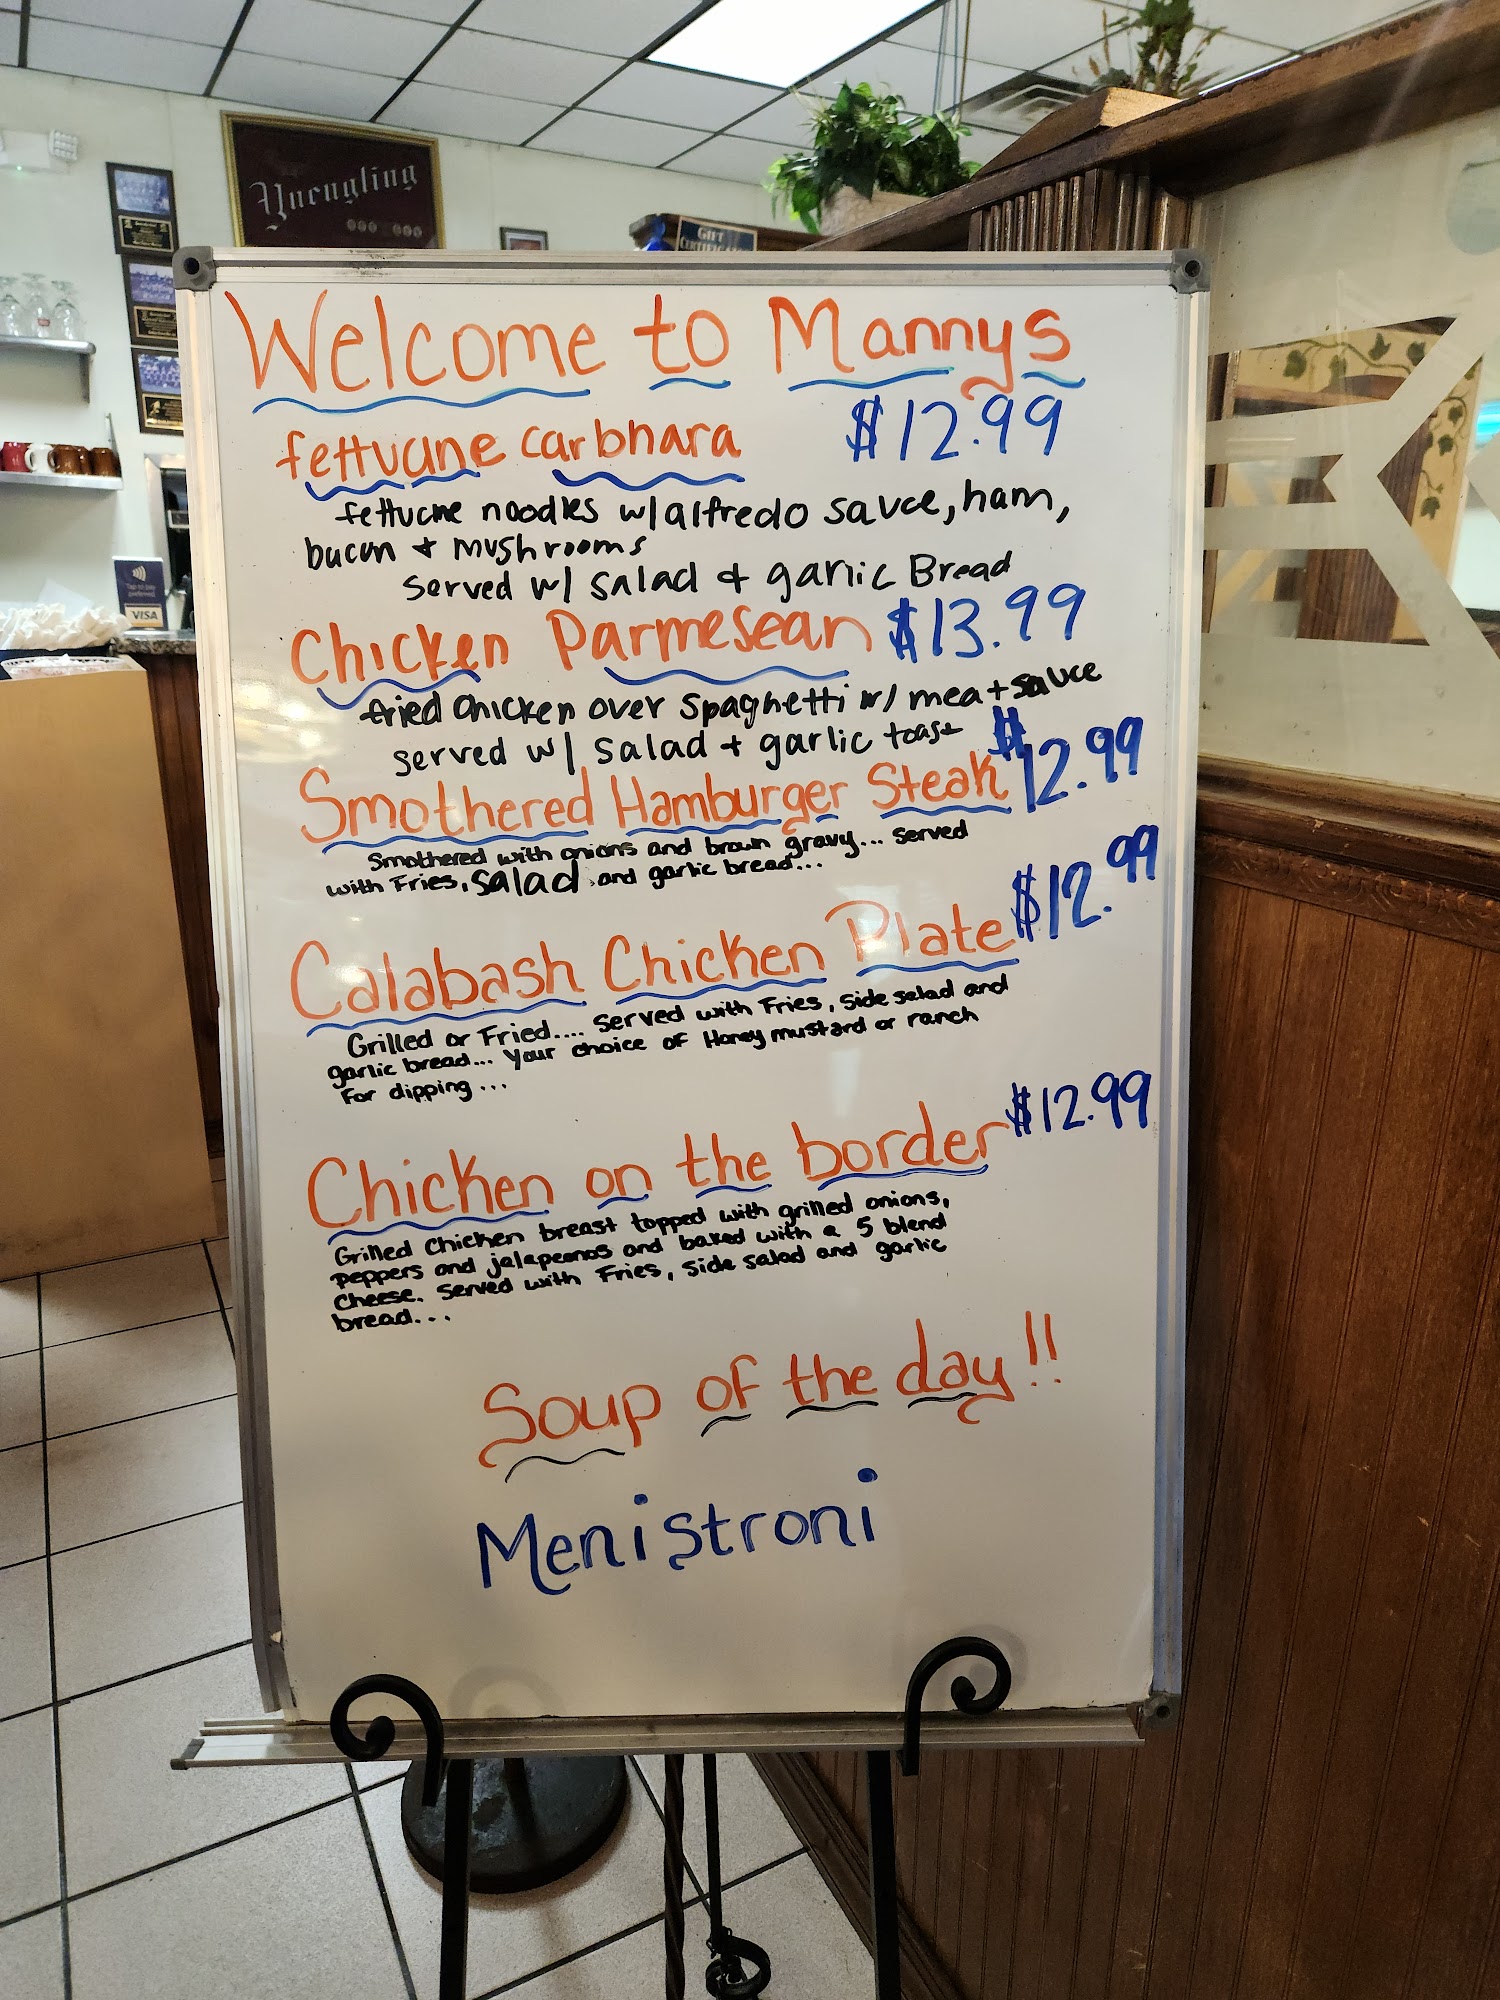 Yuengling
GIFT
CERTIFICATE
Tap to pay
preferred
VISA
Welcome to Mannys
fettucine carbnara $12.99
fettucine noodles w/alfredo sauce, ham,
bacon + mushrooms
served w/ salad + garlic Bread
Chicken Parmesean $13.99
fried chicken over spaghetti w/ meat sauce
served w/ salad + garlic toast
Smothered Hamburger Steak $12.99
Smothered with onions and brown gravy... served
with Fries, salad and garlic bread...
Calabash Chicken Plate $12.99
Grilled or Fried.... served with Fries, side salad and
garlic bread... Your choice of Honey mustard or ranch
For dipping...
Chicken on the border $12.99
Grilled Chicken breast topped with grilled onions,
peppers and jalapeonos and baked with a 5 blend
cheese. Served with Fries, side salad and garlic
bread...
Soup of the day!!
Menistroni